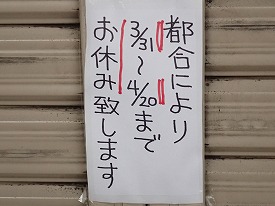 都合により
3/31～4/20まで
お休み致します